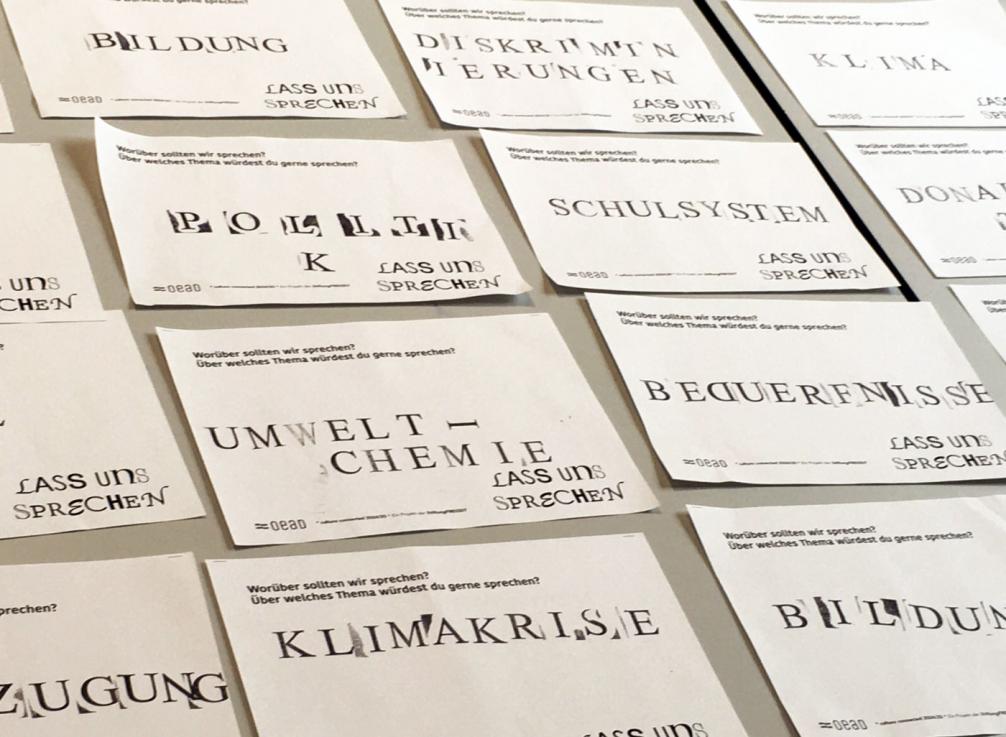 BILDUNG
LASS UNS
SPRECHEN
≈oead
DISKRIMIN
IERUNGEN
LASS UNS
SPRECHEN
≈oead
KLIMA
LASS
SPREC
Worüber sollten wir sprechen?
Über welches Thema würdest du gerne sprechen?
POLITI
K
LASS UNS
SPRECHEN
≈oead
Worüber sollten wir sprechen?
Über welches Thema würdest du gerne sprechen?
SCHULSYSTEM
LASS UNS
SPRECHEN
≈oead
Worüber sollten wir sprechen?
Über welches Thema würdest du gerne
DONA
UNS
CHEN
Worüber sollten wir sprechen?
Über welches Thema würdest du gerne sprechen?
UMWELT –
CHEMIE
LASS UNS
SPRECHEN
≈oead
Worüber sollten wir sprechen?
Über welches Thema würdest du gerne sprechen?
BEDUERFNISSE
LASS UNS
SPRECHEN
≈oead
LASS UNS
SPRECHEN
prechen?
ZUGUNG
Worüber sollten wir sprechen?
Über welches Thema würdest du gerne sprechen?
KLIMAKRISE
LASS UNS
Worüber sollten wir sprechen?
Über welches Thema würdest du gerne sprechen?
BILDUN
≈oead